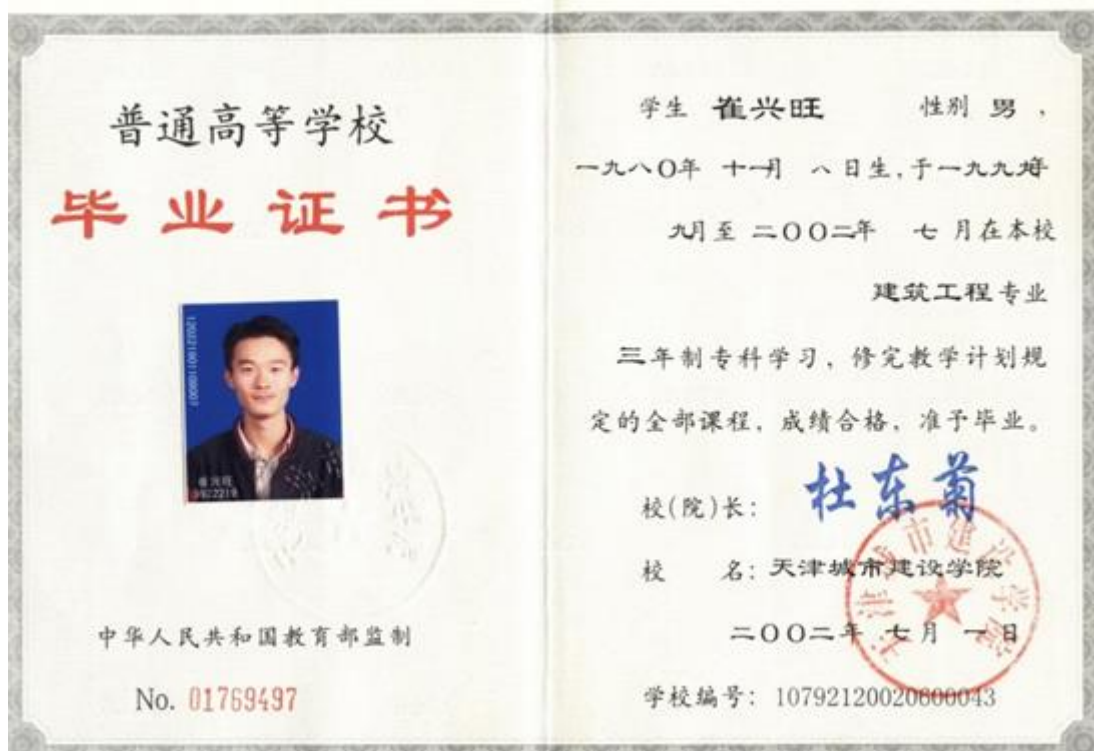 普通高等学校
毕业证书
崔兴旺
中华人民共和国教育部监制
No. 01769497
学生 崔兴旺 性别 男，
一九八〇年 十一月 八日生，于一九九九年
九月至 二〇〇二年 七月在本校
建筑工程专业
三年制专科学习，修完教学计划规
定的全部课程，成绩合格，准予毕业。
校(院)长： 杜东菊
校 名：天津城市建设学院
二〇〇二年 七月 一日
天津城市建设学院
学校编号：10792120020600043